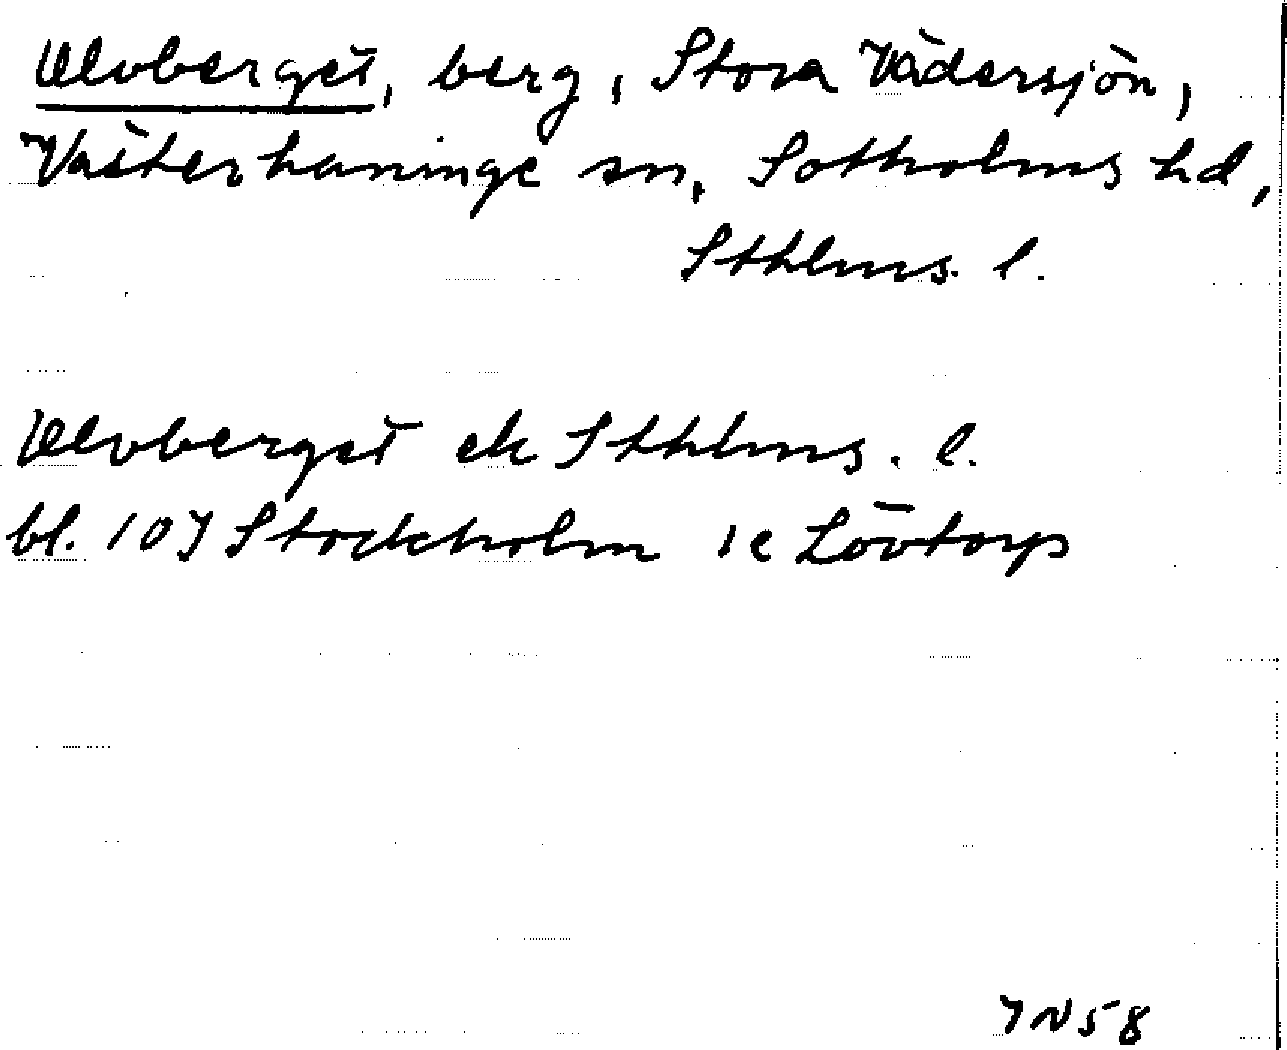 Ulvberget, berg, Stora Vädersjön,
Västerhaninge sn, Sotholms hd,
Sthlms. l.
Ulvberget ek Sthlms. l.
bl. 10J Stockholm 1e Lövtorp
JN58